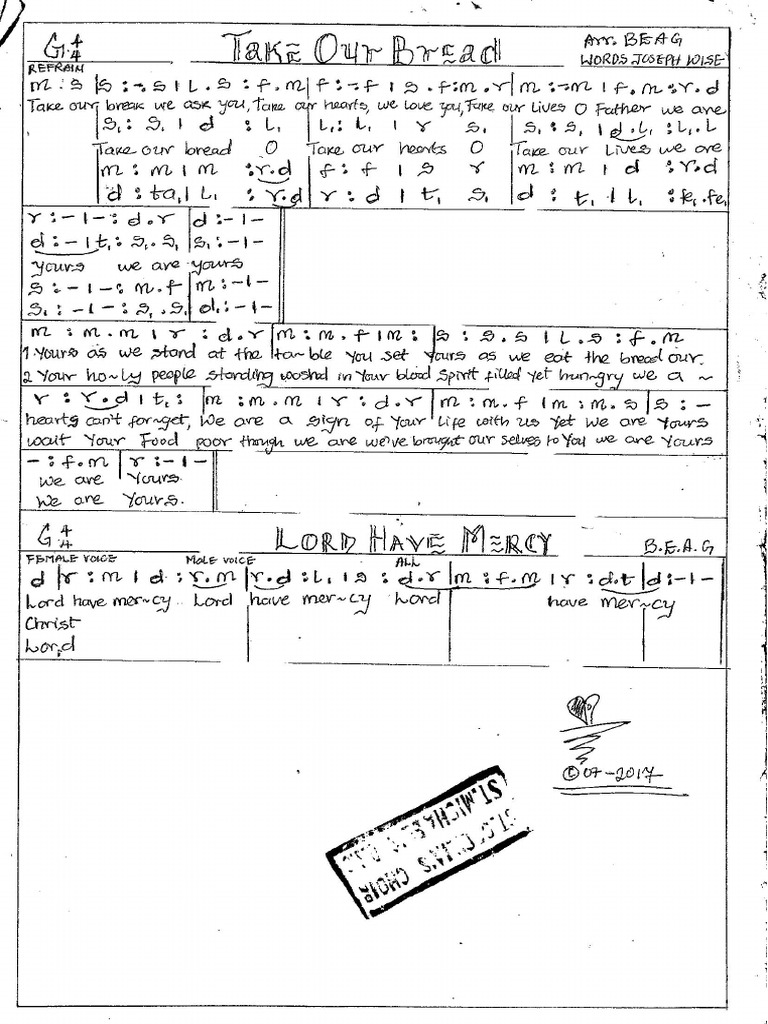 G 4/4 Take Our Bread Arr. BEAG
REFRAIN WORDS JOSEPH WISE
m . s | s : -.s | L . s : f . m | f : -.f | s . f : m . r | m : -.m | f . m : r . d
Take our break we ask you, Take our hearts, we love you, Take our Lives O Father we are
s₁ : s₁ | d : L₁ | L₁ : L₁ | r s₁ | s₁ : s₁ | d . L₁ : L₁ . L
Take our bread O Take our hearts O Take our Lives we are
m : m | m : r . d | f : f | s r | m : m | d : r . d
d : ta₁ | L₁ : r . d | r : d | t₁ s₁ | d : t₁ | L₁ : fe₁ . fe₁
r : - | - : d . r | d : - | -
d : - | t₁ : s₁ . s₁ | s₁ : - | -
yours we are yours
s : - | - : m . f | m : - | -
s₁ : - | - : s₁ . s₁ | d₁ : - | -
m : m . m | r : d . r | m : m . f | m : | s : s . s | L . s : f . m
1 Yours as we stand at the ta~ble You set Yours as we eat the bread our
2 Your ho~ly people standing washd in Your blood Spirit filled Yet hungry we a ~
r : r . d | t₁ : | m : m . m | r : d . r | m : m . f | m : m . s | s : -
hearts can't forget, We are a sign of Your Life with us Yet We are Yours
wait Your Food poor though we are we've brought our selves to You we are Yours
- : f . m | r : - | -
we are Yours
We are Yours.
G 4/4 LORD HAVE MERCY B.E.A.G
FEMALE VOICE MOLE VOICE ALL
d | r : m | d : r . m | r . d : L₁ | s : d . r | m : f . m | r : d . t | d : - | -
Lord have mer~cy Lord have mercy Lord have mer~cy
Christ
Lord
©07-2017
CHOIR
ST. MICHAEL